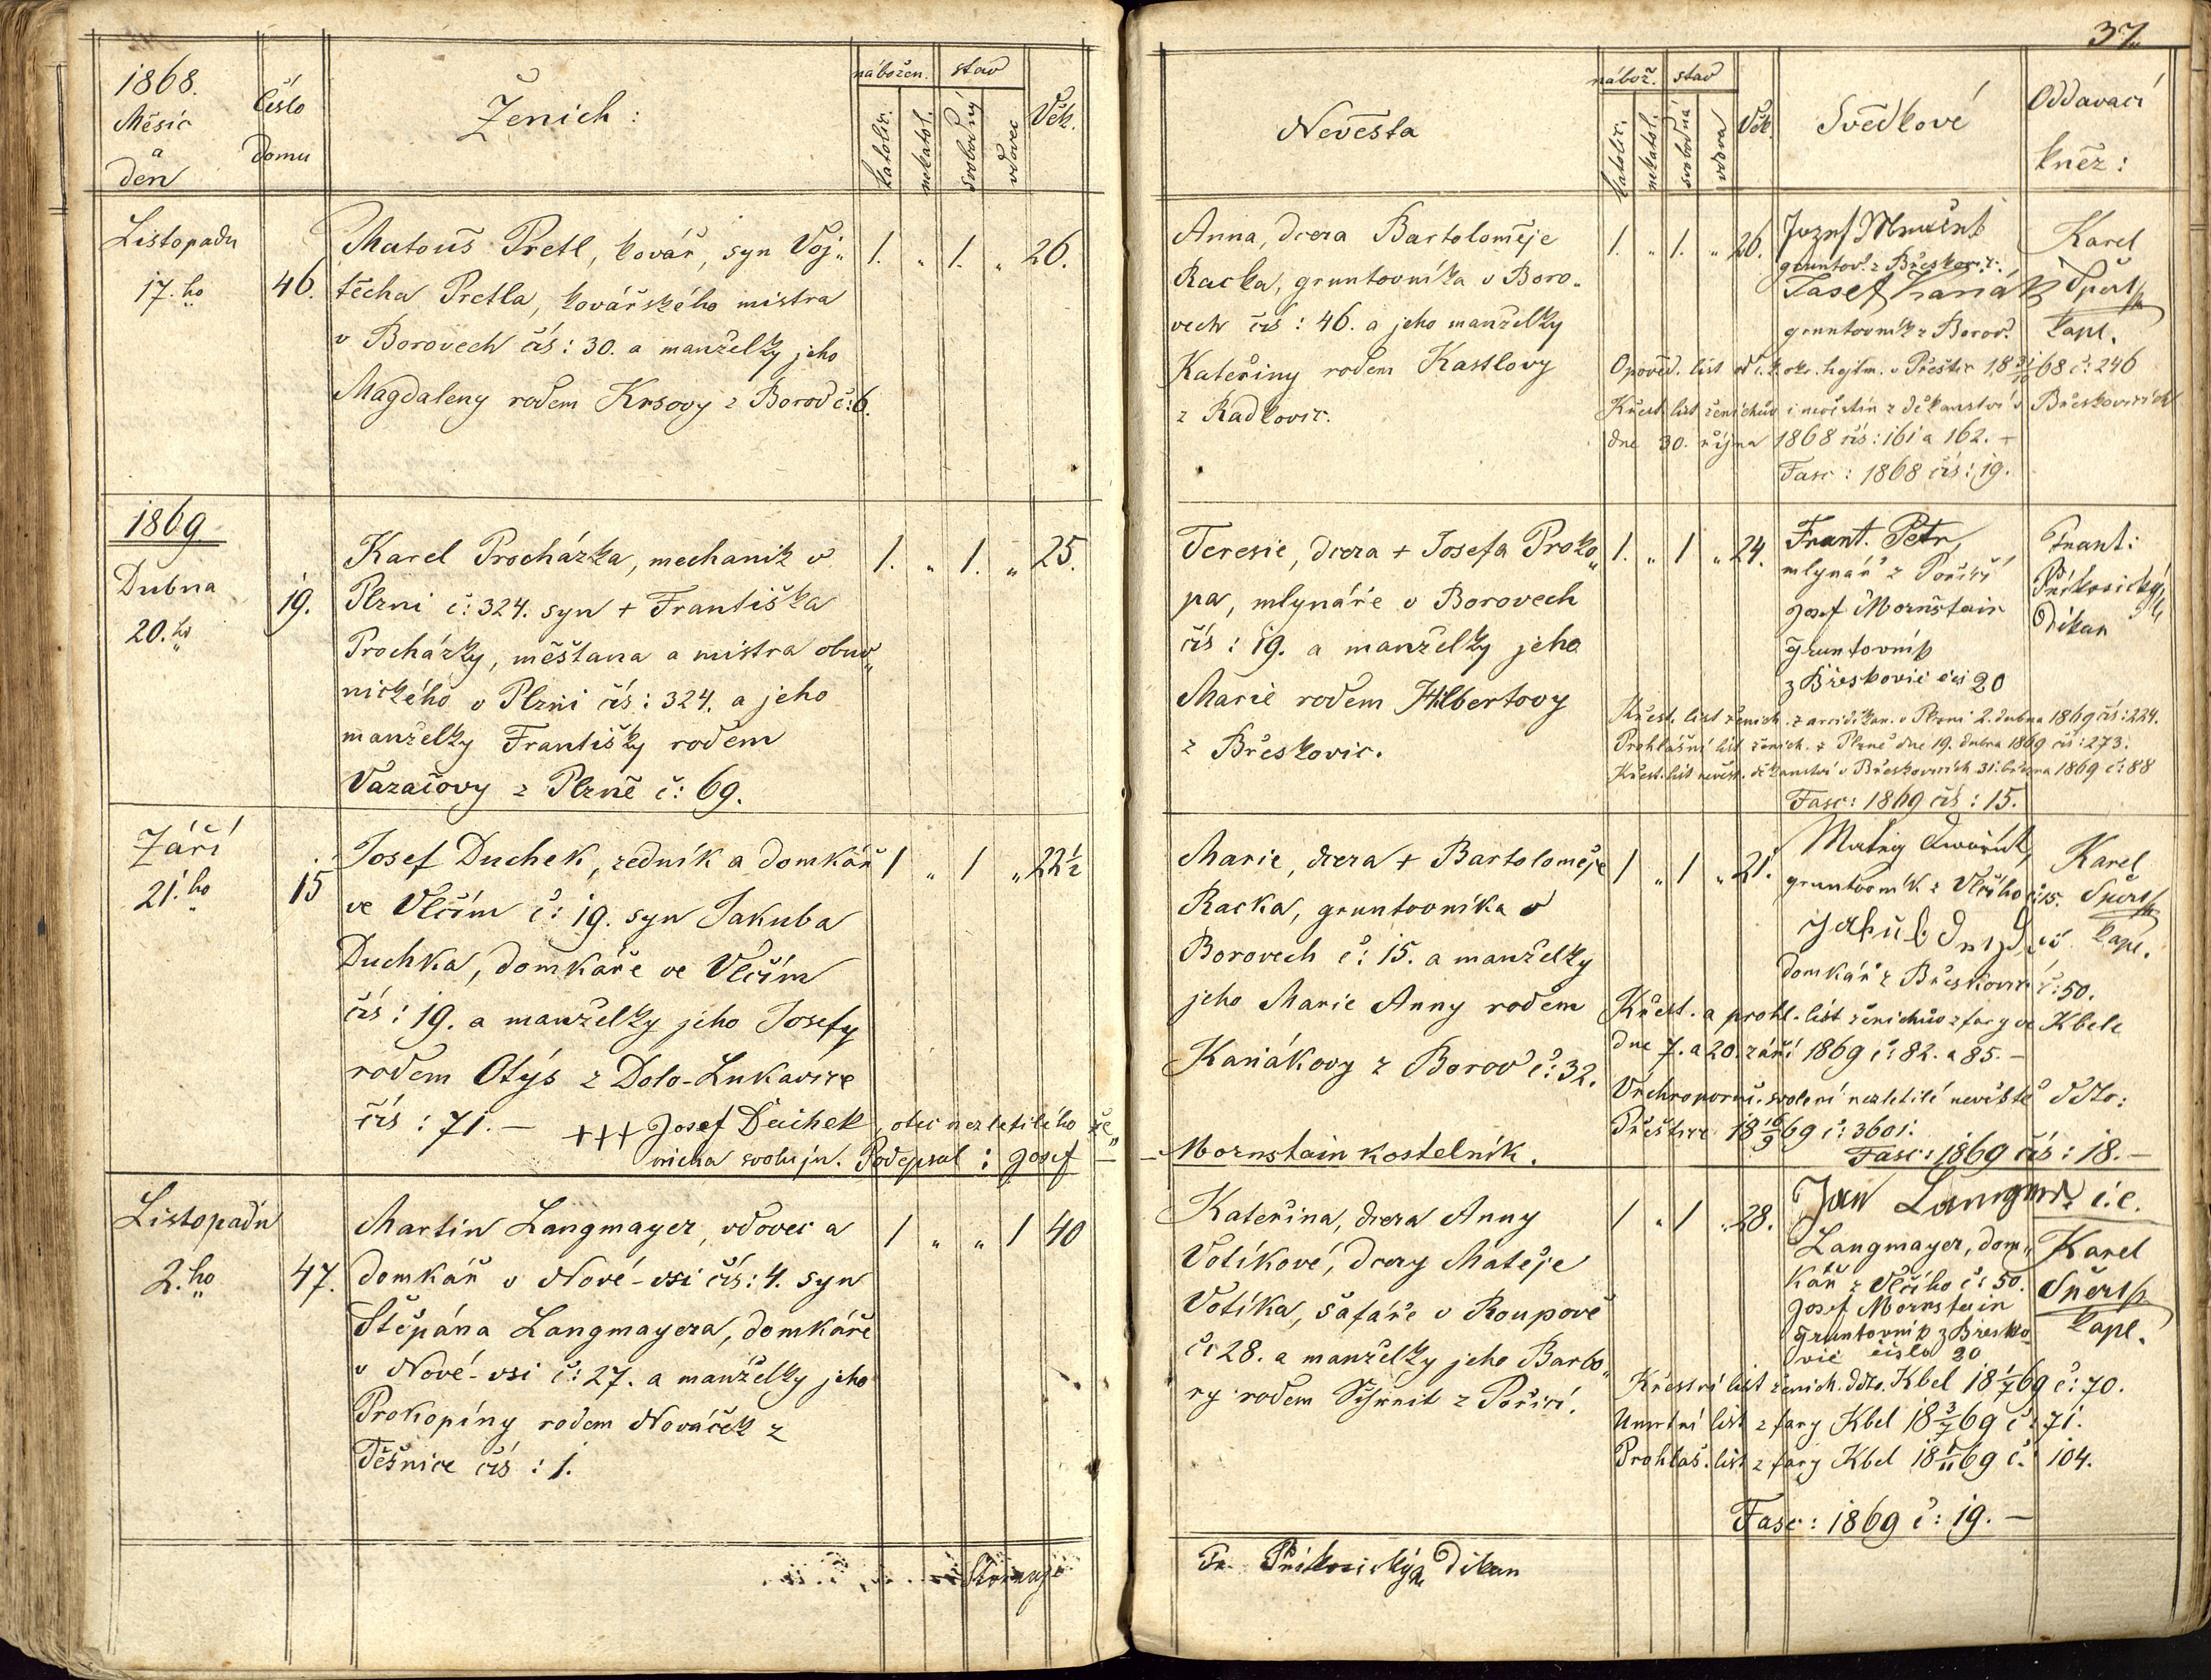 37.
1868.
Měsíc
a
den
Číslo
domu
Ženich:
nábožen.
stav
katolic.
nekatol.
svobodný
vdovec
Věk.
Listopadu
17.ho
46.
Matouš Pretl, kovář, syn Voj„
těcha Pretla, kovářského mistra
v Borovech čís: 30. a manželky jeho
Magdaleny rodem Krsovy z Borov č: 6.
1. „ 1. „ 26.
1869
Dubna
20.ho
19.
Karel Procházka, mechanik v
Plzni č: 324. syn + Františka
Procházky, měšťana a mistra obuv„
nického v Plzni čís: 324. a jeho
manželky Františky rodem
Vazačovy z Plzně č: 69.
1. „ 1. „ 25.
Září
21.ho
15
Josef Duchek, zedník a domkář
ve Vlčím č: 19. syn Jakuba
Duchka, domkáře ve Vlčím
čís: 19. a manželky jeho Josefy
rodem Otýs z Dolo-Lukavice
čís: 71. —
+++ Josef Duchek, otec nezletilého že„
nicha svoluju. Podepsal: Josef
1 „ 1 „ 22½
Listopadu
2.ho
47.
Martin Langmayer, vdovec a
domkář v Nové-vsi čís: 4. syn
Štěpána Langmayera, domkáře
v Nové-vsi č: 27. a manželky jeho
Prokopíny rodem Nováček z
Těšnice čís: 1.
1 „ „ 1 40
Nevěsta
nábož.
stav
katolic.
nekatol.
svobodná
vdova
Věk.
Svědkové
Oddávací
kněz:
Anna, dcera Bartoloměje
Racka, gruntovníka v Boro„
vech čís: 46. a jeho manželky
Kateřiny rodem Kastlovy
z Radkovic.
1. „ 1. „ 26.
gruntov. z Břeskovic.
Josef Kaňák
gruntovník z Borov.
Karel
Špert
kapl.
Opověd. list od c. k. okr. hejtm. v Přešticích 18 31/10 68 č: 246
Křest. list ženichův i nevěstin z děkanství v Břeskovicích
dne 30. října 1868 čís: 161 a 162. —
Fasc: 1868 čís: 19.
Teresie, dcera + Josefa Proko„
pa, mlynáře v Borovech
čís: 19. a manželky jeho
Marie rodem Hilbertovy
z Břeskovic.
1. „ 1 „ 24.
Frant. Petr,
mlynář z Poříčí
Josef Mornštain
gruntovník
z Břeskovic čís 20
Frant:
Příkosický
Děkan
Křest. list ženich. z arciděkan. v Plzni 2. dubna 1869 čís: 224.
Prohlašní list ženich. z Plzně dne 19. dubna 1869 čís: 273.
Křest. list nevěst. děkanství v Břeskovicích 31. března 1869 č: 88
Fasc: 1869 čís: 15.
Marie, dcera + Bartoloměje
Racka, gruntovníka v
Borovech č: 15. a manželky
jeho Marie Anny rodem
Kaňákovy z Borov č: 32.
Mornstain kostelník.
1 „ 1 „ 21.
gruntovník z Vlčího č: 15.
domkář z Břeskovic č: 50.
Karel
Špert
kapl.
Křest. a prohl. list ženichův z fary ve Kbele
dne 7. a 20. září 1869 č: 82. a 85. —
Vrchnoporuč. svolení nezletilé nevěstě ddto:
Přeštice 18 16/9 69 č: 3601.
Fasc: 1869 čís: 18. —
Kateřina, dcera Anny
Votíkové, dcery Matěje
Votíka, šafáře v Roupově
č: 28. a manželky jeho Barbo„
ry rodem Schmit z Poříčí.
1 „ 1 „ 28.
Jan Langmr. i.e.
Langmayer, dom„
kář z Vlčího č: 50.
Josef Mornstain
gruntovník z Břesko
vic číslo 20
Karel
Špert
kapl.
Křestní list ženich. ddto. Kbel 18 1/7 69 č: 70.
Umrtní list z fary Kbel 18 3/7 69 č: 71.
Prohlaš. list z fary Kbel 18 1/11 69 č: 104.
Fasc: 1869 č: 19. —
Fr. Příkosický Děkan